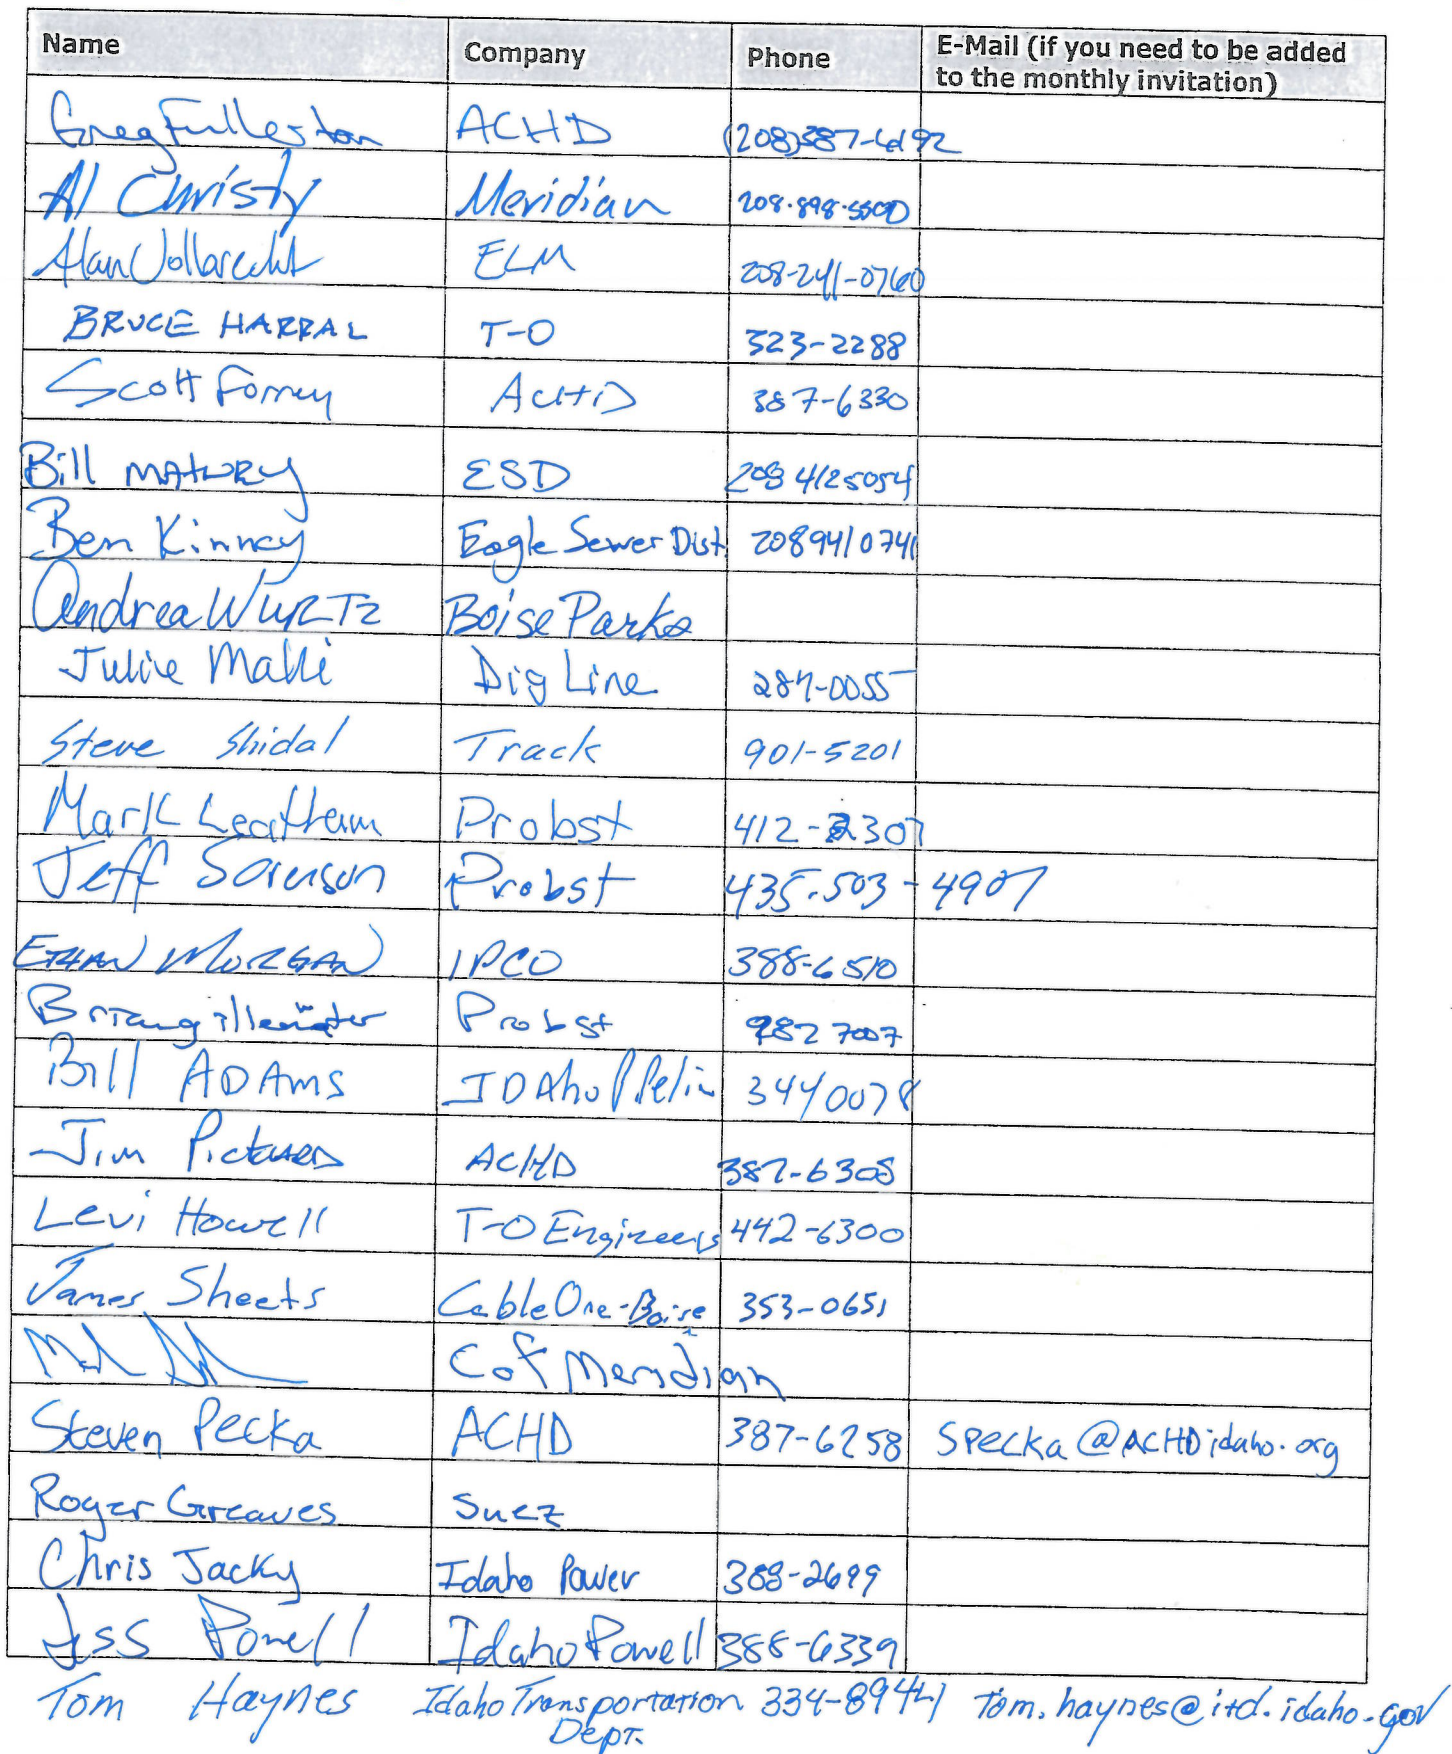 Name Company Phone E-Mail (if you need to be added
to the monthly invitation)
Greg Fullerton ACHD (208)387-6192
Al Christy Meridian 208-898-5500
Alan Vollbrecht ELM 208-241-0760
BRUCE HARRAL T-O 323-2288
Scott Forrey ACHD 387-6330
Bill ESD 208 4125054
Ben Kinney Eagle Sewer Dist. 208 941 0741
Andrea WURTZ Boise Parks
Julie Maki Dig Line 287-0055
Steve Shidal Track 901-5201
Mark Leatham Probst 412-2307
Jeff Sorenson Probst 435-503-4907
ETHAN MORGAN IPCO 388-6510
Probst 982 7007
Bill ADAms IDAho 344 0078
Jim ACHD 387-6308
Levi Howell T-O Engineers 442-6300
James Sheets Cable One-Boise 353-0651
C of Meridian
Steven Pecka ACHD 387-6258 Specka@ACHDidaho.org
Roger Greaves Suez
Chris Jacky Idaho Power 388-2699
Jess Powell Idaho Powell 388-6339
Tom Haynes Idaho Transportation 334-8944 Tom.haynes@itd.idaho.gov
Dept.